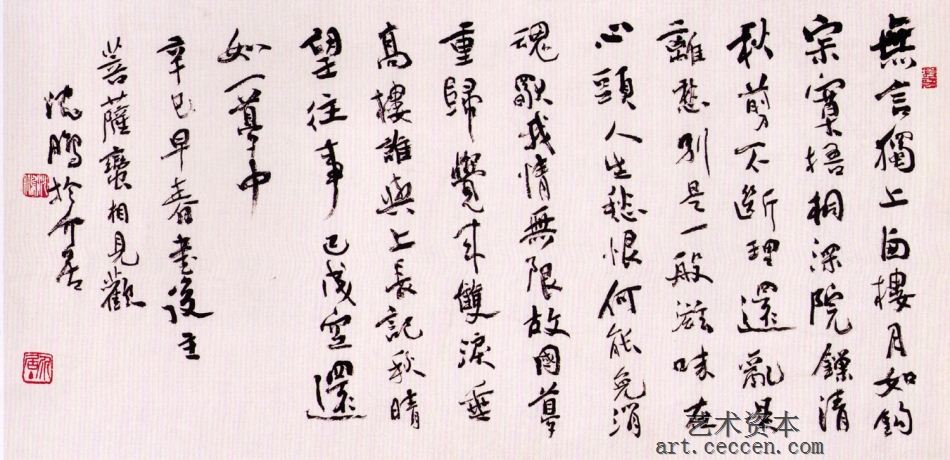 無言獨上西樓月如鈎
寂寞梧桐深院鎖清
秋剪不斷理還亂是
離愁別是一般滋味在
心頭人生愁恨何能免消
魂獨我情無限故國夢
重歸覺來雙淚垂
高樓誰與上長記秋晴
望往事已成空還
如一夢中
辛巳早春書後主
菩薩蠻相見歡
沈鵬於介居
艺术资本
art.ceccen.com